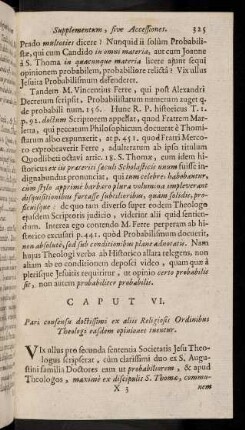 Supplementum, sive Accessiones. 325
Prado multoties dicere: Nunquid ii solùm Probabili-
stæ, qui cum Candido in omni materia, aut cum Joanne
à S. Thoma in quacunque materia licere ajunt sequi
opinionem probabilem, probabiliore relictâ? Vix ullus
Jesuita Probabilismum defenderet.
Tandem M. Vincentius Ferre, qui post Alexandri
Decretum scripsit, Probabilistarum numerum auget q.
de probabili num. 156. Hunc R. P. historicus T. 1.
p. 92. doctum Scriptorem appellat, quod Fratrem Mar-
letta, qui peccatum Philosophicum docuerat è Thomi-
starum albo expunxerit, at p. 451. quod Fratri Merco-
ro exprobraverit Ferre, adulteratum ab ipso titulum
Quodlibeti octavi artic. 18. S. Thomæ, eum idem hi-
storicus ex iis præteriti sæculi Scholasticis unum fuisse in-
dignabundus pronunciat, qui cum celebres habebantur,
cum stylo apprime barbaro plura volumina impleverant
disquisitionibus fortasse subtilioribus, quàm solidis, pro-
ficuisque: de quo tam diverso super eodem Theologo
ejusdem Scriptoris judicio, viderint alii quid sentien-
dum. Interea ego contendo M. Ferre perperam ab hi-
storico excusati p. 441. quòd Probabilismum docuerit,
non absolutè, sed sub conditionibus planè adnotatis. Nam
hujus Theologi verba ab Historico allata relegens, non
aliam ab eo conditionem deposci video, quam quæ à
plerisque Jesuitis requiritur, ut opinio certo probabilis
sit, non autem probabiliter probabilis.
CAPUT VI.
Pari consensu doctissimi ex aliis Religiosis Ordinibus
Theologi easdem opiniones tuentur.
VIx ullus pro secunda sententia Societatis Jesu Theo-
logus scripserat, cùm clarissimi duo ex S. Augu-
stini familia Doctores eam ut probabiliorem, & apud
Theologos, maximè ex discipulis S. Thomæ, commu-
X 3 nem